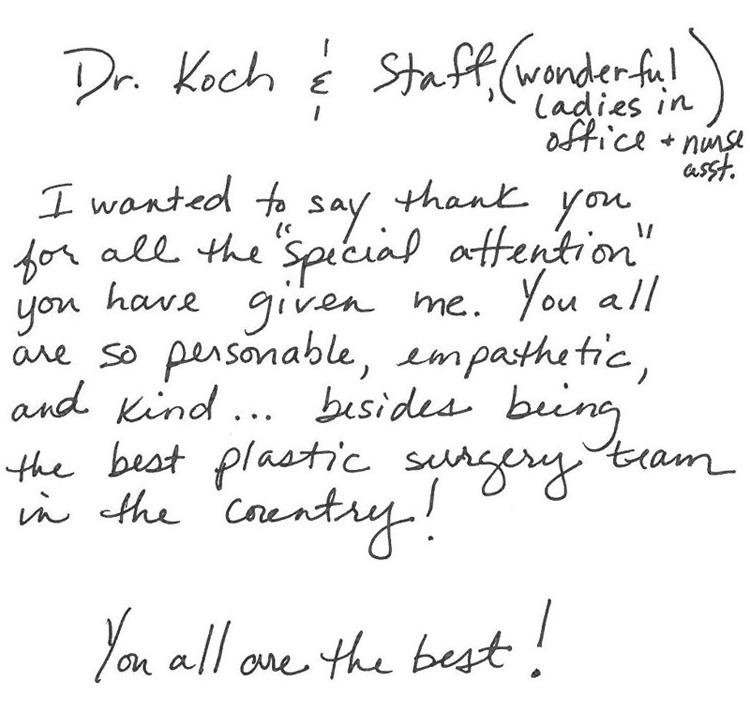 Dr. Koch & Staff, (wonderful
ladies in
office + nurse
asst.)
I wanted to say thank you
for all the "special attention"
you have given me. You all
are so personable, empathetic,
and kind... besides being
the best plastic surgery team
in the country!
You all are the best!